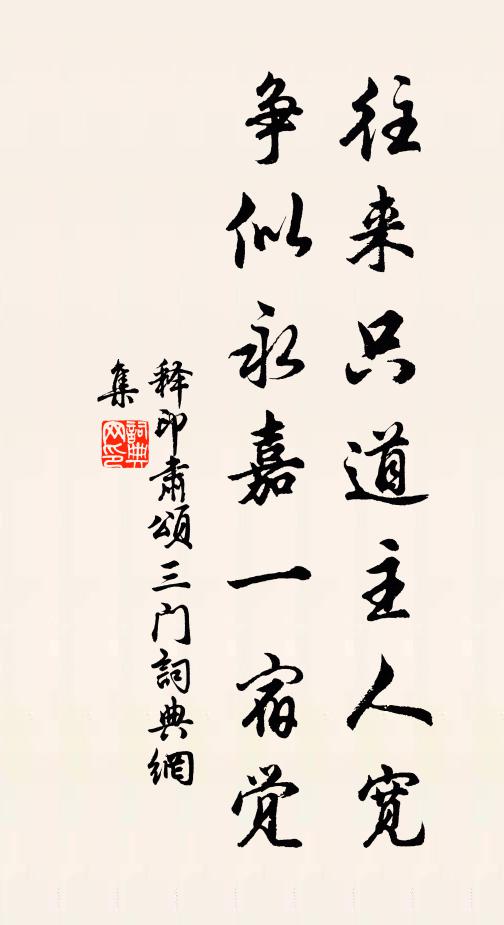 往来只道主人宽
争似永嘉一宿觉
释印肃颂三门詞典網
集
詞典网印